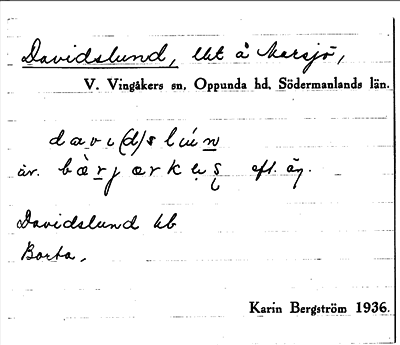 Davidslund, lht å Marsjö,
V. Vingåkers sn, Oppunda hd, Södermanlands län.
dav i(d)s lún
äv. bàrjærkęs eft. äg.
Davidslund hb
Borta.
Karin Bergström 1936.